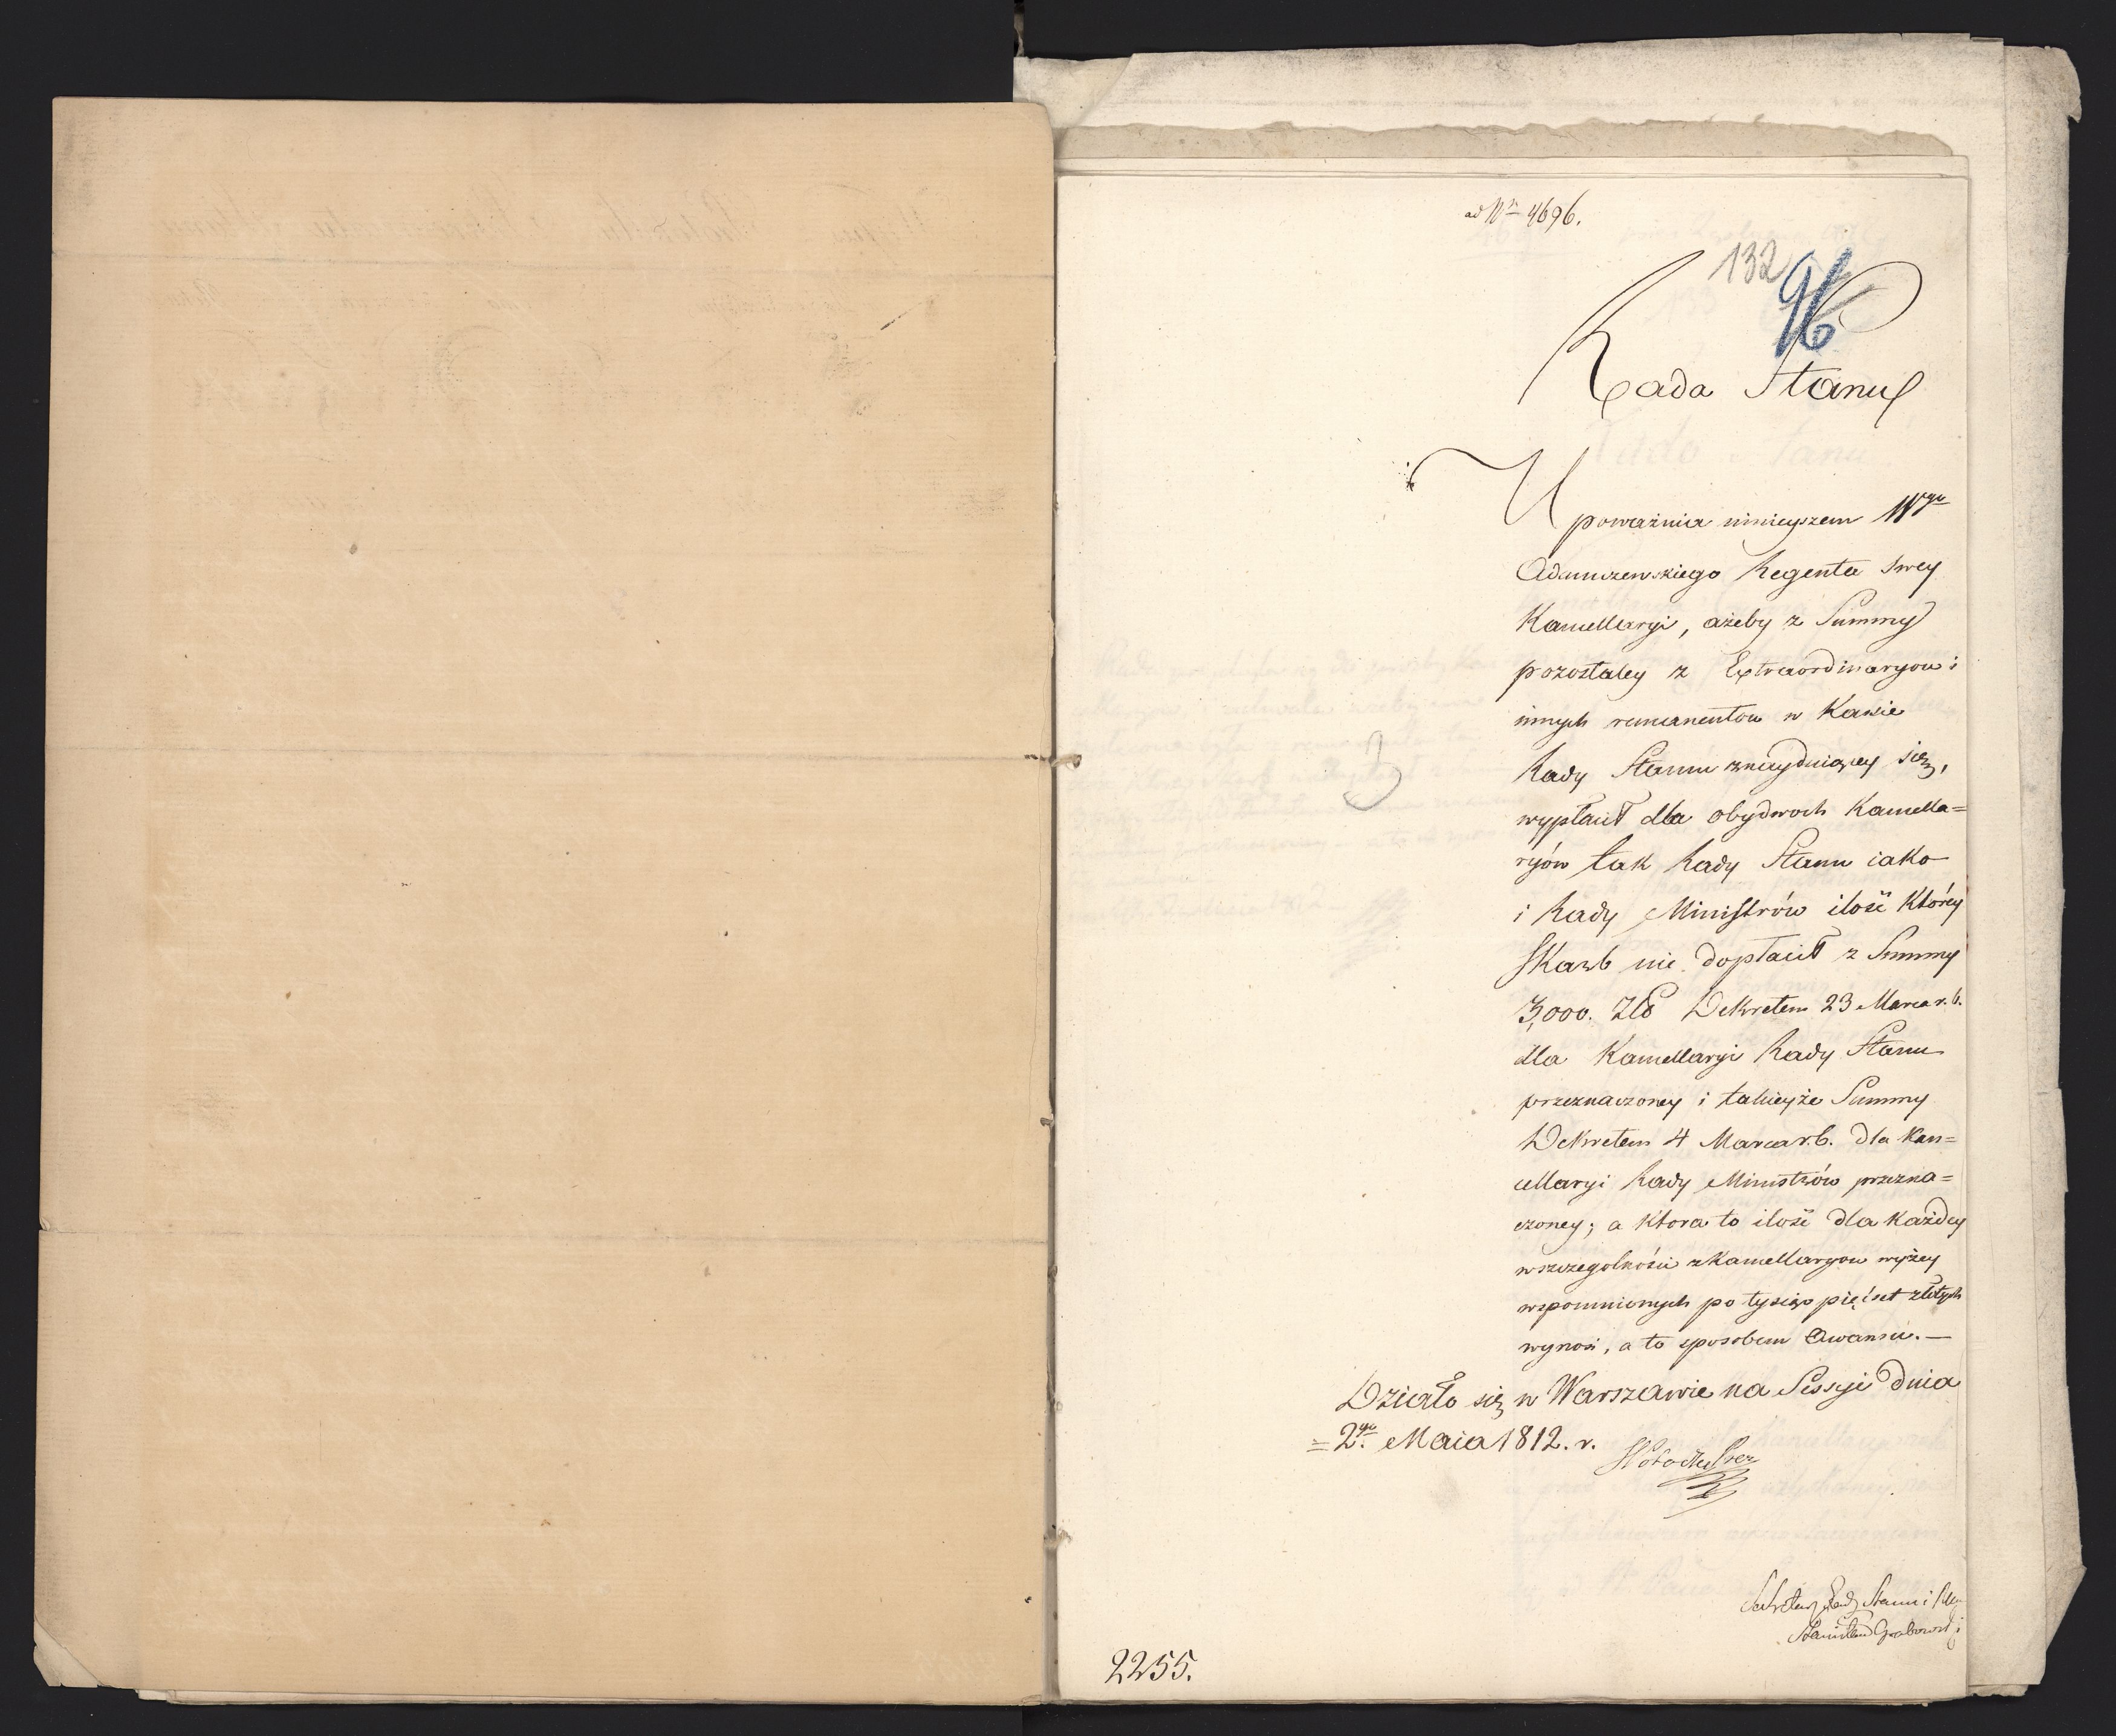 ad Nr 4696.
132
96
Rada Stanu
Upoważnia ninieyszem Wgo
Adamszewskiego Regenta swey
Kancellaryi, ażeby z Summy
pozostałey z Extraordinaryow i
innych remanentow w Kassie
Rady Stanu znayduiącey się,
wypłacił dla obydwoch Kancella=
ryiów tak Rady Stanu iako
i Rady Ministrów ilość którey
Skarb nie dopłacił z Summy
3,000. Zł Dekretem 23 Marca r. b.
dla Kancellaryi Rady Stanu
przeznaczoney i takieyże Summy
Dekretem 4 Marca r. b. dla Kan=
cellaryi Rady Ministrów przezna=
czoney; a ktora to ilość dla każdey
wszczegolności z Kancellaryow wyżey
wspomnionych po tysiąc pięćset złotych
wynosi, a to sposobem Awansu. —
Działo się w Warszawie na Sessyi dnia
= 2go. Maia 1812. r.
3
Sekretarz Rady Stanu i
Stanisław Grabowski
2255.